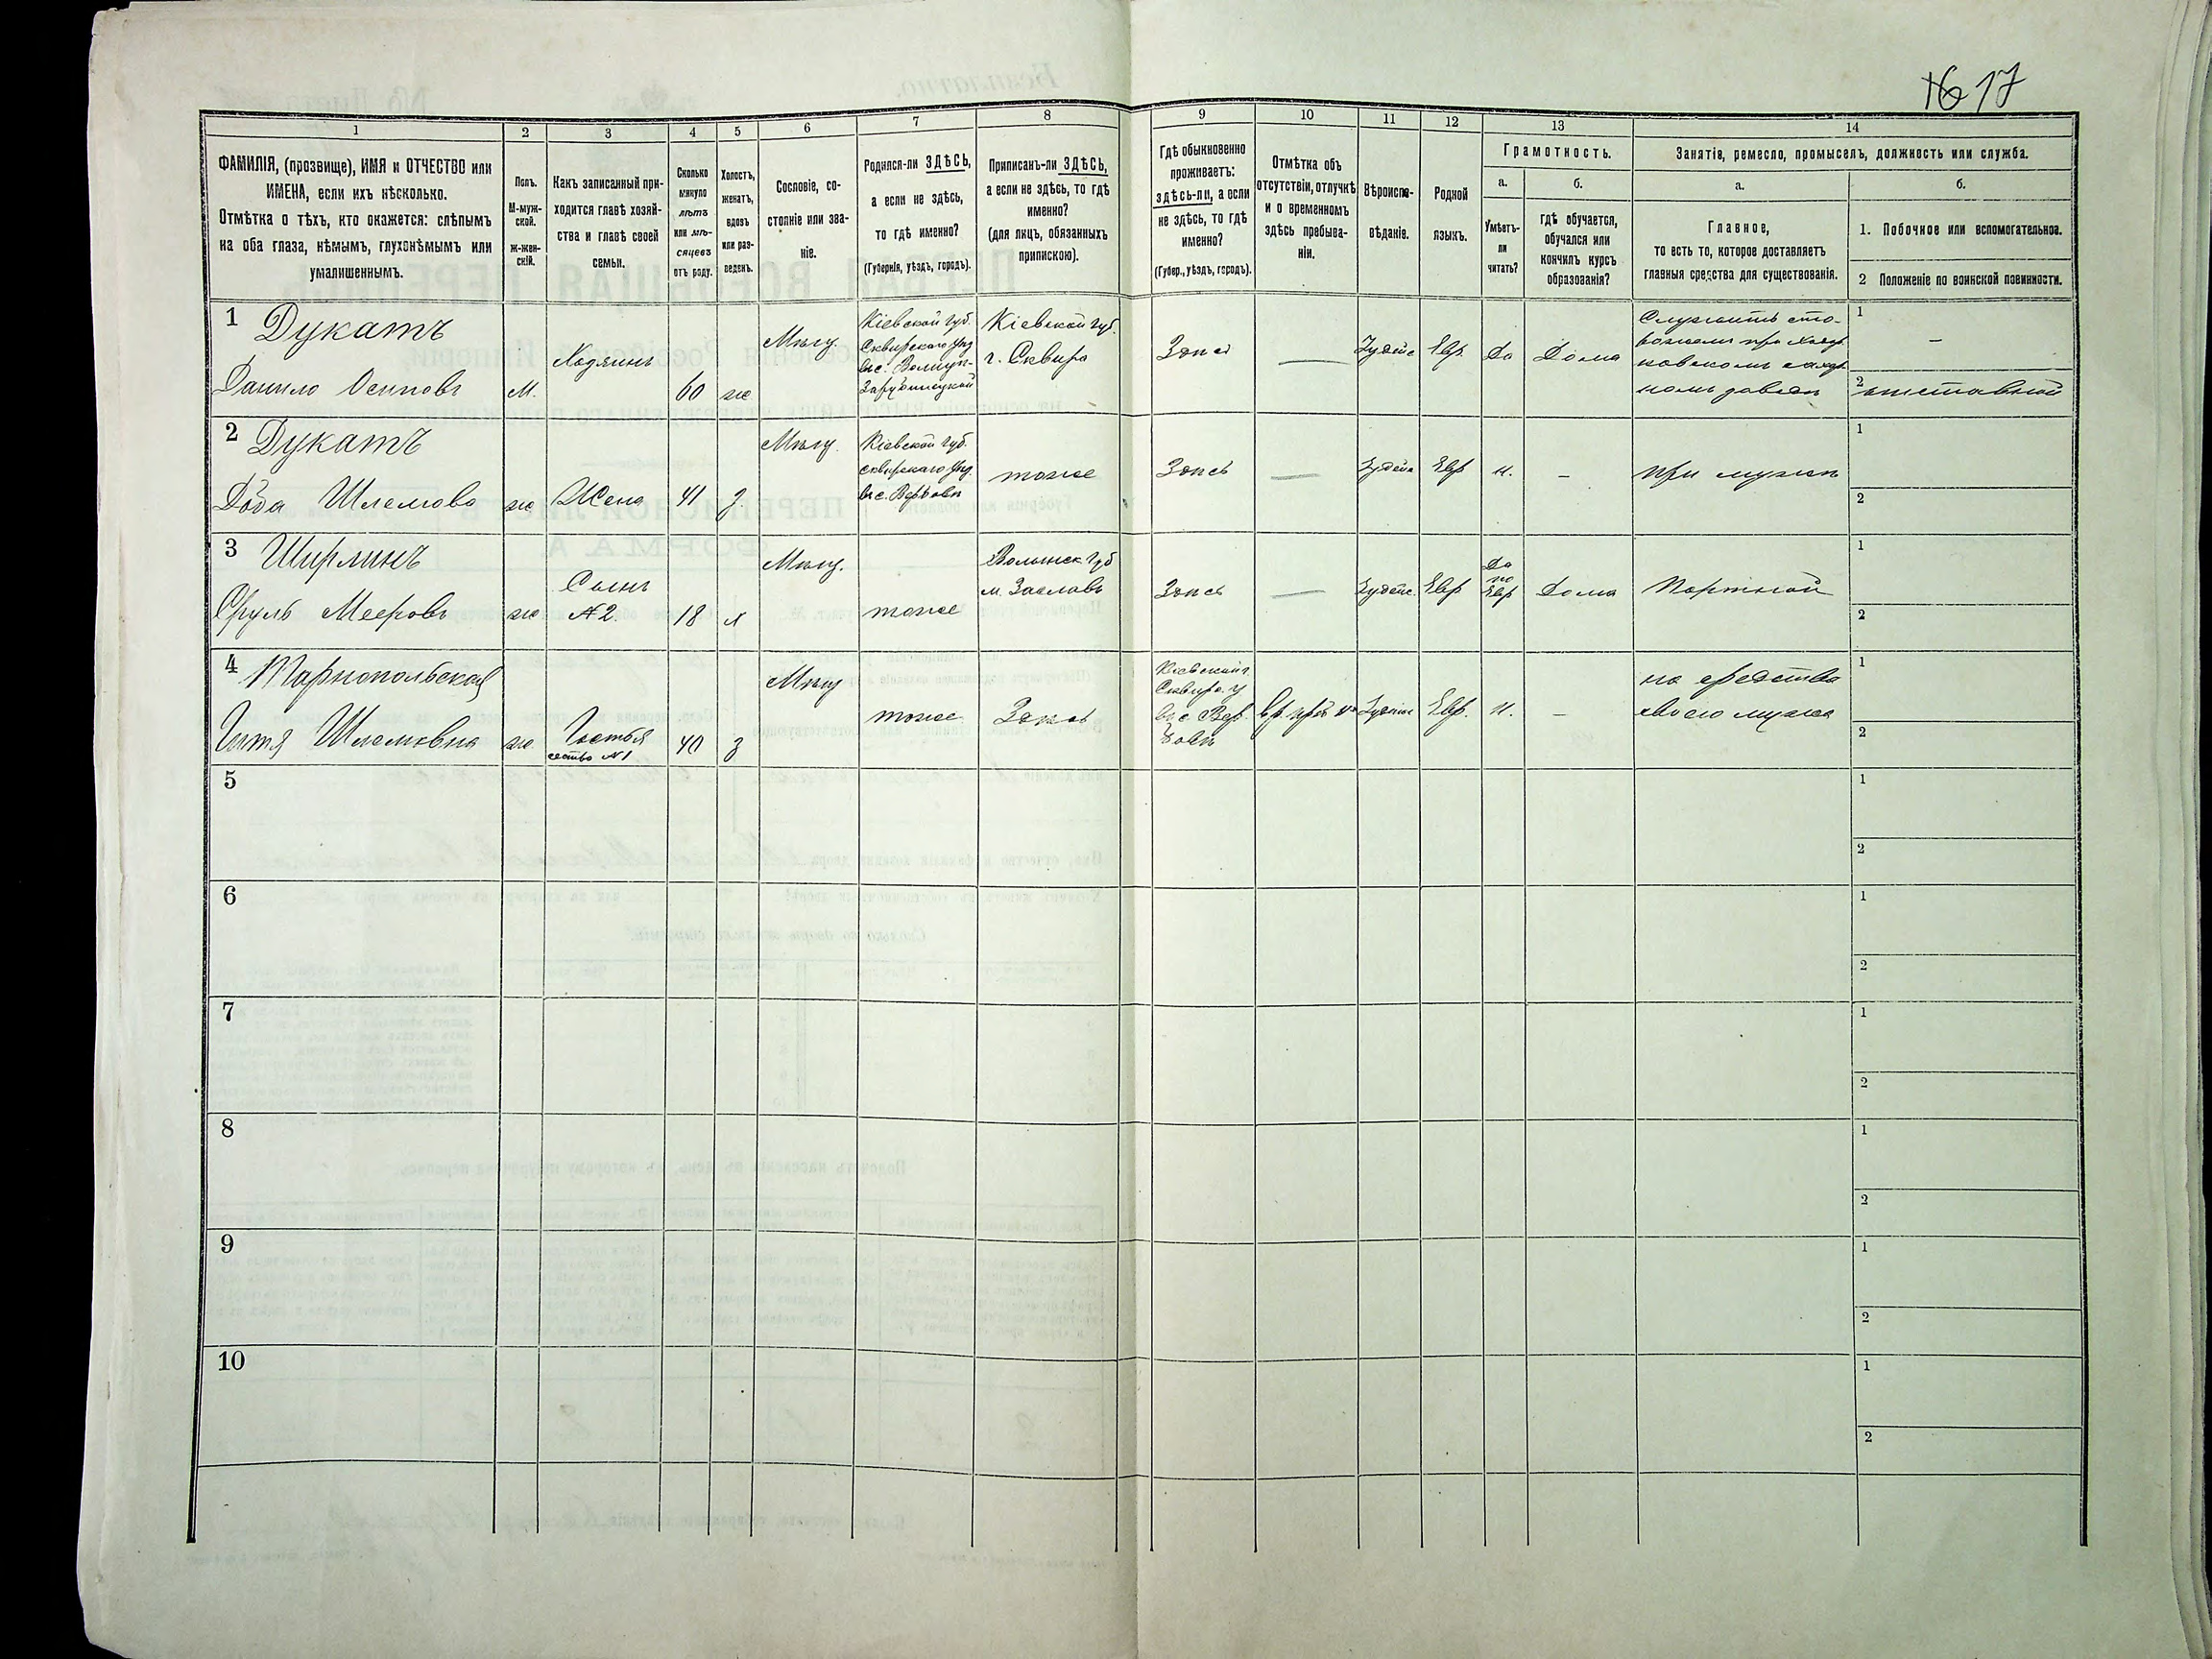 16 17
1
2
3
4
5
6
7
8
9
10
11
12
13
14
ФАМИЛІЯ, (прозвище), ИМЯ и ОТЧЕСТВО или
ИМЕНА, если ихъ нѣсколько.
Отмѣтка о тѣхъ, кто окажется: слѣпымъ
на оба глаза, нѣмымъ, глухонѣмымъ или
умалишеннымъ.
Полъ.
М-муж-
ской.
Ж-жен-
скій.
Какъ записанный при-
ходится главѣ хозяй-
ства и главѣ своей
семьи.
Сколько
минуло
лѣтъ
или мѣ-
сяцевъ
отъ роду.
Холостъ,
женатъ,
вдовъ
или раз-
веденъ.
Сословіе, со-
стояніе или зва-
ніе.
Родился-ли ЗДѢСЬ,
а если не здѣсь,
то гдѣ именно?
(Губернія, уѣздъ, городъ).
Приписанъ-ли ЗДѢСЬ,
а если не здѣсь, то гдѣ
именно?
(для лицъ, обязанныхъ
припискою).
Гдѣ обыкновенно
проживаетъ:
здѣсь-ли, а если
не здѣсь, то гдѣ
именно?
(Губер., уѣздъ, городъ).
Отмѣтка объ
отсутствіи, отлучкѣ
и о временномъ
здѣсь пребыва-
ніи.
Вѣроиспо-
вѣданіе.
Родной
языкъ.
Грамотность.
а.
Умѣетъ-
ли
читать?
б.
гдѣ обучается,
обучался или
кончилъ курсъ
образованія?
Занятіе, ремесло, промыселъ, должность или служба.
а.
Главное,
то есть то, которое доставляетъ
главныя средства для существованія.
б.
1. Побочное или вспомогательное.
2 Положеніе по воинской повинности.
1 Дукатъ
Данило Осиповъ
М.
Хозяинъ
60
ж
Мѣщ.
Кіевской губ.
Сквирскаго
Кіевской губ.
г. Сквира
Здѣсь
—
Іудейс
Евр
Да
Дома
Служитъ сто-
1
—
2 отставной
2 Дукатъ
Шлемова
ж
Жена
41
з.
Мѣщ.
Кіевской губ.
сквирскаго
тоже
Здѣсь
—
Іудейс
Евр
н.
—
при мужѣ
1
2
3 Ширлинъ
Сруль Мееровъ
ж
Сынъ
№2.
18
х
Мѣщ.
тоже
Волынск губ
м. Заславъ
Здѣсь
—
Іудейс.
Евр
Да
по
Евр
Дома
Портной
1
2
4 Тарнопольская
Гитя Шлемовна
ж
Гостья
№1
40
з
Мѣщ
тоже
Здѣсь
Кіевской г.
Сквирс. у
Евр.
н.
—
на средства
своего мужа
1
2
5
1
2
6
1
2
7
1
2
8
1
2
9
1
2
10
1
2